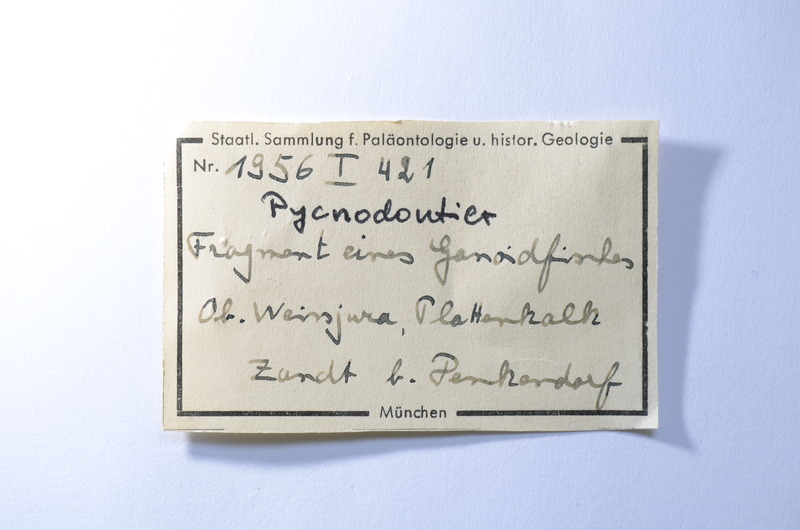 Staatl. Sammlung f. Paläontologie u. histor. Geologie
Nr. 1956 I 421
Pycnodontier
Fragment eines Ganoidfisches
Ob. Weissjura, Plattenkalk
Zandt b. Denkendorf
München